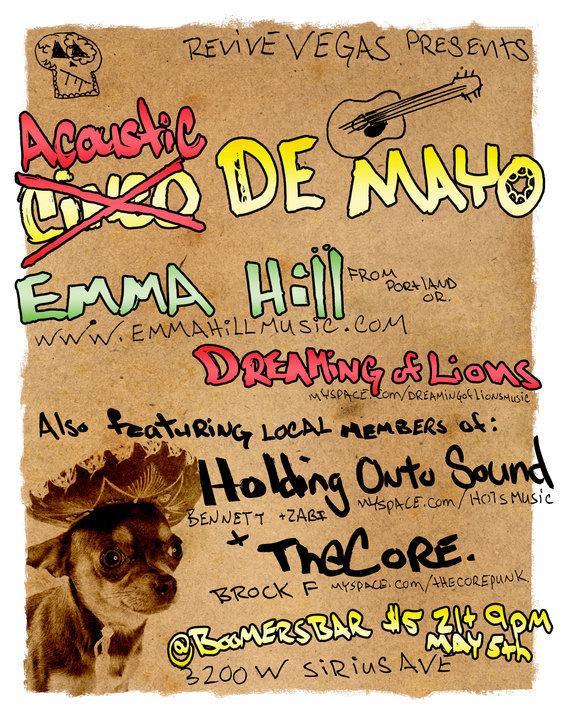 REVIVE VEGAS PRESENTS
Acoustic
CINCO DE MAYO
EMMA Hill FROM PORTLAND OR.
WWW.EMMAHILLMUSIC.COM
DREAMING of Lions
MYSPACE.COM/DREAMINGofLIONSMUSIC
Also featuring local members of:
Holding Onto Sound
BENNETT + ZABI MYSPACE.COM/HOTSMUSIC
+ THECORE.
BROCK F MYSPACE.COM/THECOREPUNK
@BOOMERSBAR $5 21+ 9pm
MAY 5th
3200 W SiRiUS AVE